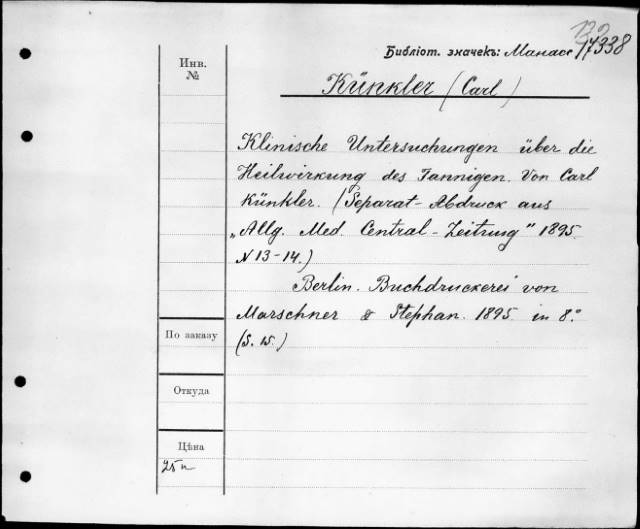 Библіот. значекъ: Манасс 17338
Инв.
№
Künkler (Carl)
Klinische Untersuchungen über die
Heilwirkung des Tannigen. Von Carl
Künkler. (Separat-Abdruck aus
„Allg. Med. Central-Zeitung" 1895.
N 13-14.)
Berlin. Buchdruckerei von
Marschner & Stephan. 1895. in 8.°
(S. 15.)
По заказу
Откуда
Цѣна
25 к